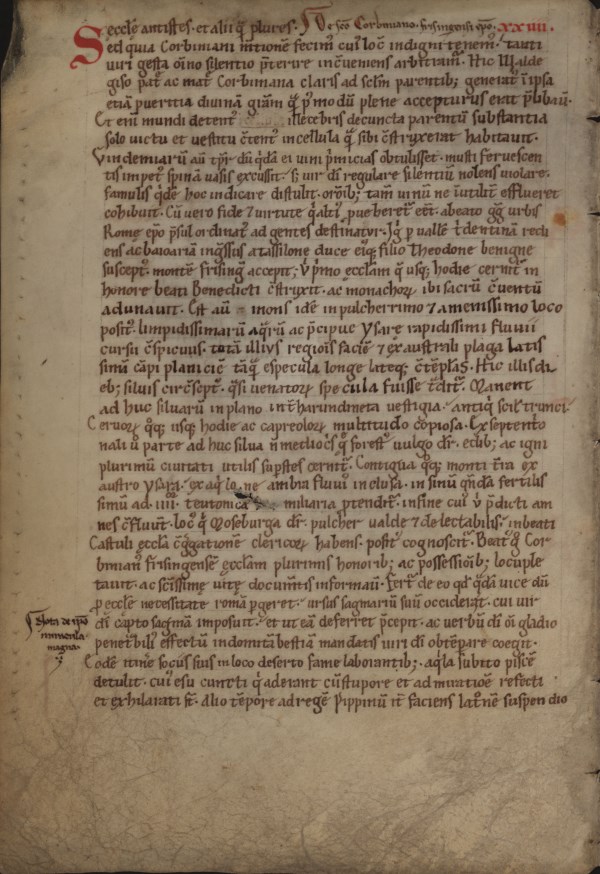 ecclē antistes · et alii q̄ plures · De scō Corbiniano frisingensi epō · XXIIII ·
Sed quia Corbiniani mētionē fecim᷒ cui᷒ loc̄ indigni tenem᷒ · tanti
uiri gesta oīno silentio p̄terire incōueniens arbitram᷒ · Hic Walde
giso pat̄ ac mat̄ Corbiniana claris ad sclm̄ parentib; generat᷒ in ipsa
etiā pueritia diuinā gr̄am q̄ p᷒modū plene accepturus erat p̄libauit ·
Et eni mundi illecebris decuncta parentū substantia
solo uictu et uestitu cōtent᷒ in cellula q̄ sibi cōstruxerat habitauit ·
Vindemiarū aū tp̄r dū q̄dā ei uini p̄micias obtulisset · musti feruescen
tis impet᷒ spinā uasis excussit · s; uir dī regulare silentiū nolens uiolare ·
famulis q̄dē hoc indicare distulit · orōib; tam̄ uinū ne īutilit̄ efflueret
cohibuit · Cū uero fide ⁊ uirtute q̄ālit̄ pueberet᷒ · abeato gḡ urbis
Romę epō p̄sul ordinat᷒ ad gentes destinatur · Isq̄ p uallē tdentinā redi
ens ac baioariā inḡssus a tassilone duce ei᷒q; filio Theodone benigne
suscept᷒ · montē frisinḡ accepit; ibi p̄mo ecclam q̄ usq; hodie cernit᷒ in
honore beati Benedicti cōstruxit · ac monachoꝝ ibi sacrū cōuentū
adunauit · Est aū mons idē in pulcherrimo ⁊ amenissimo loco
posit᷒ · limpidissimarū aq̄rū ac p̄cipue Ysarę rapidissimi fluuii
cursu cōspicuus · totā illius regiōis faciē ⁊ ex australi plaga latis
simū cāpi planiciē tāq̄ especula longe lateq; cōtēplās · Hic illis di
eb; siluis circūsept᷒ · q̄si uenatoꝝ specula fuisse tdit᷒ · Manent
ad huc siluarū in plano int̄ harundineta uestigia · antiq̄ scil; trunci ·
Ceruoꝝ q̄q; usq; hodie ac capreoloꝝ multitudo copiosa · Ex septentrio
nali ū parte ad huc silua n̄ mediocs̄ q̄ forest᷒ uulgo dr̄ · edib; ac igni
plurimū ciuitati utilis supstes cernit᷒ · Contigua q̄q; monti tr̄a ex
austro ysara · ex aq̄lone ambra fluuiis inclusa · in sinū q̄ndā fertilis
simū ad · IIII · teutonica miliaria ptendit᷒ · in fine cui᷒ ū p̄dicti am
nes cōfluunt · loc᷒ q̄ Moseburga dr̄ · pulcher ualde ⁊ delectabilis · in beati
Castuli ecclā cōgregationē clericoꝝ habens · posit᷒ cognoscit᷒ · Beat᷒ g Cor
binian᷒ frisingensē ecclam plurimis honorib; ac possessiōib; locuple
tauit · ac scīssimę uitę documtis informauit · Fert᷒ de eo qd q̄dā uice dū
p ecclę necessitate romā pgeret · ursus sagmariū suū occiderat · cui uir
dī capto sagmā imposuit · et ut eā deferret p̄cepit · ac uerbū dī oī gladio
penetbili᷒ effectū indomitā bestiā mandatis uiri dī obtēpare coegit ·
Eodē itinere sociis suis in loco deserto fame laborantib; aq̄la subito piscē
detulit · cui᷒ esu cuncti q̄ aderant cū stupore et admiratiōe refecti
et exhilarati st̄ · Alio tēpore ad regē Pippinū it̄ faciens latronē suspendio
Nota de ipō
miracula
magna ·